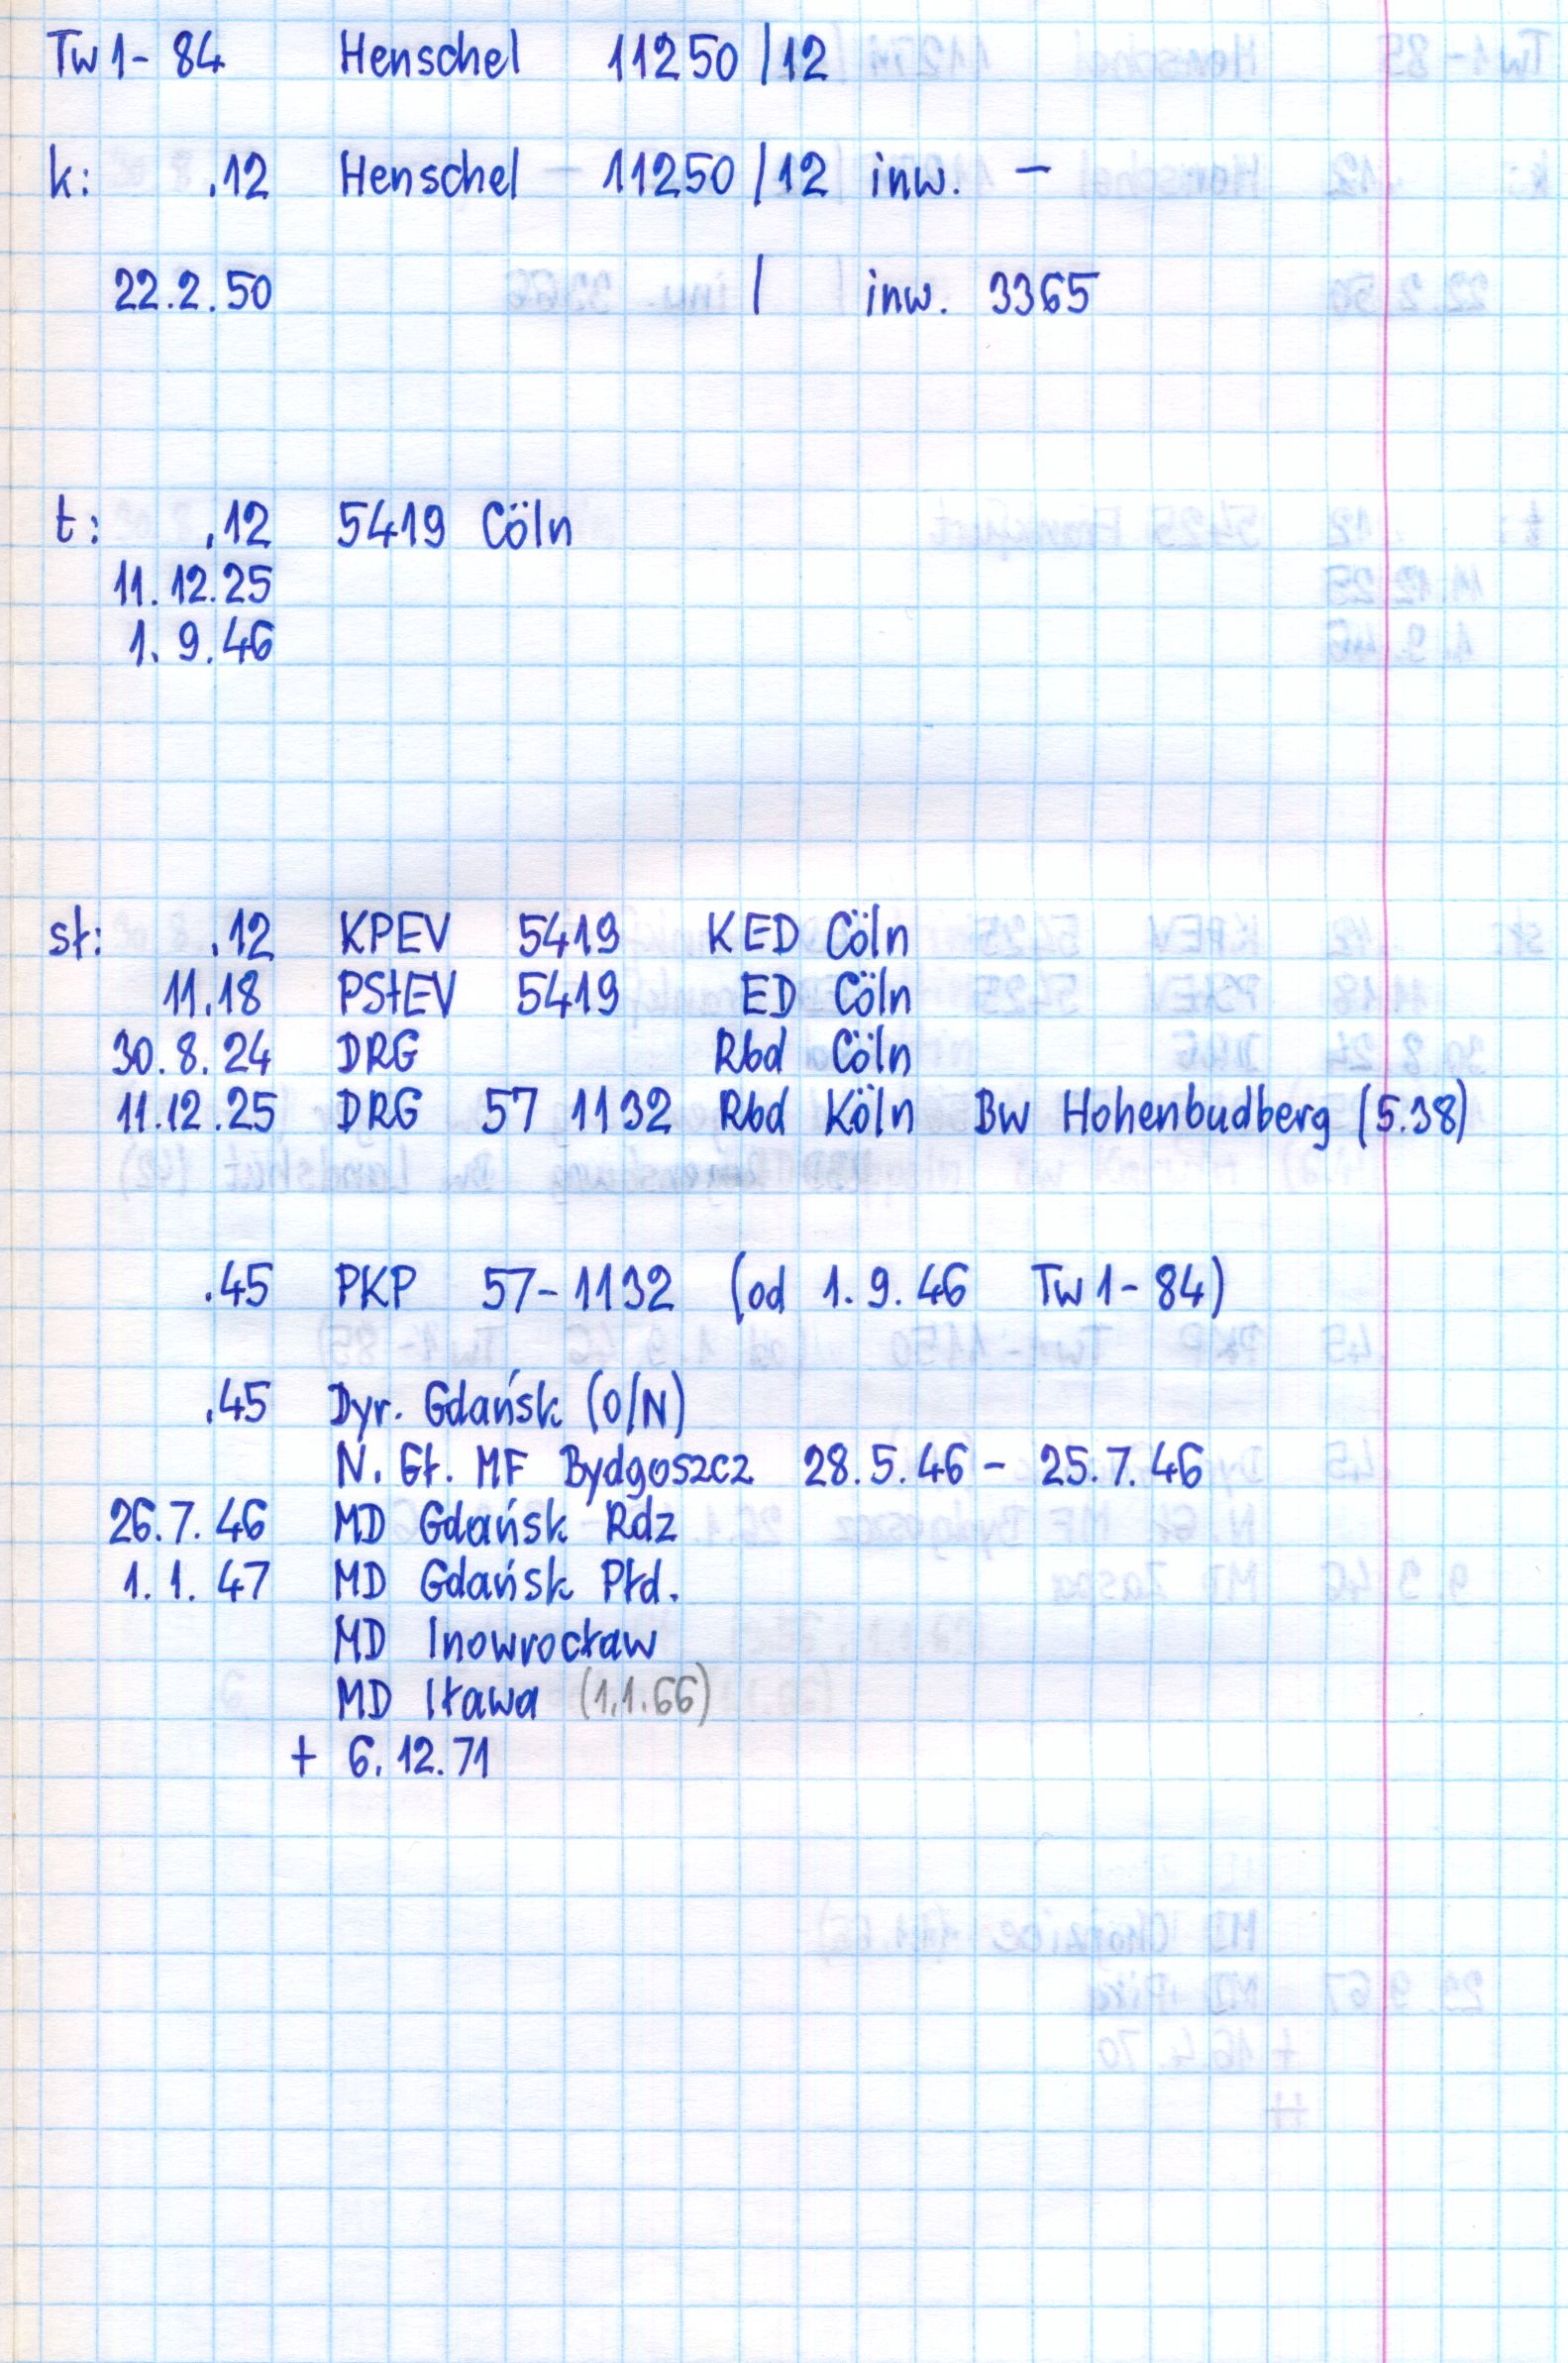 Tw 1-84 Henschel 11250/12
k: .12 Henschel 11250/12 inw. -
22.2.50 / inw. 3365
t: .12 5419 Cöln
11.12.25
1.9.46
sł: .12 KPEV 5419 KED Cöln
11.18 PStEV 5419 ED Cöln
30.8.24 DRG Rbd Cöln
11.12.25 DRG 57 1132 Rbd Köln Bw Hohenbudberg (5.38)
.45 PKP 57-1132 (od 1.9.46 Tw 1-84)
.45 Dyr. Gdańsk (O/N)
N. Gł. MF Bydgoszcz 28.5.46 - 25.7.46
26.7.46 MD Gdańsk Rdz
1.1.47 MD Gdańsk Płd.
MD Inowrocław
MD Iława (1.1.66)
+ 6.12.71